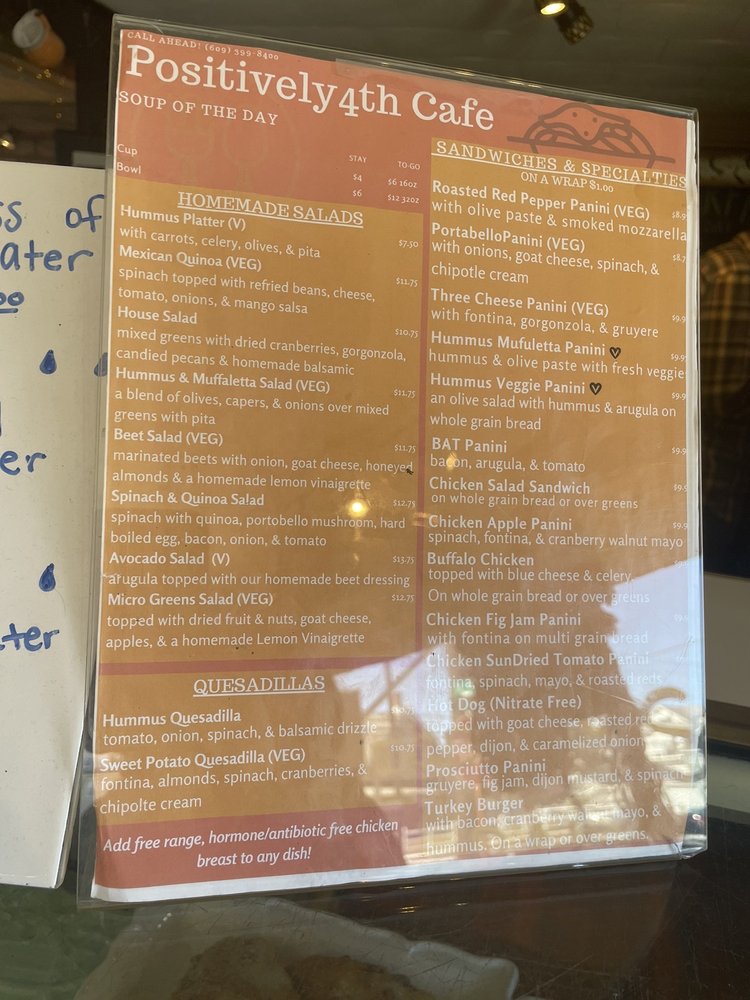 CALL AHEAD! (609) 399-8400
Positively4th Cafe
SOUP OF THE DAY
STAY TO-GO
Cup $4 $6 16oz
Bowl $6 $12 32oz
HOMEMADE SALADS
Hummus Platter (V) $7.50
with carrots, celery, olives, & pita
Mexican Quinoa (VEG) $11.75
spinach topped with refried beans, cheese,
tomato, onions, & mango salsa
House Salad $10.75
mixed greens with dried cranberries, gorgonzola,
candied pecans & homemade balsamic
Hummus & Muffaletta Salad (VEG) $11.75
a blend of olives, capers, & onions over mixed
greens with pita
Beet Salad (VEG) $11.75
marinated beets with onion, goat cheese, honeyed
almonds & a homemade lemon vinaigrette
Spinach & Quinoa Salad $12.75
spinach with quinoa, portobello mushroom, hard
boiled egg, bacon, onion, & tomato
Avocado Salad (V) $13.75
arugula topped with our homemade beet dressing
Micro Greens Salad (VEG) $12.75
topped with dried fruit & nuts, goat cheese,
apples, & a homemade Lemon Vinaigrette
QUESADILLAS
Hummus Quesadilla $10.75
tomato, onion, spinach, & balsamic drizzle
Sweet Potato Quesadilla (VEG) $10.75
fontina, almonds, spinach, cranberries, &
chipolte cream
Add free range, hormone/antibiotic free chicken
breast to any dish!
SANDWICHES & SPECIALTIES
ON A WRAP $1.00
Roasted Red Pepper Panini (VEG)
with olive paste & smoked mozzarella
PortabelloPanini (VEG)
with onions, goat cheese, spinach, &
chipotle cream
Three Cheese Panini (VEG)
with fontina, gorgonzola, & gruyere
Hummus Mufuletta Panini ♡
hummus & olive paste with fresh veggie
Hummus Veggie Panini ♡
an olive salad with hummus & arugula on
whole grain bread
BAT Panini
bacon, arugula, & tomato
Chicken Salad Sandwich
on whole grain bread or over greens
Chicken Apple Panini
spinach, fontina, & cranberry walnut mayo
Buffalo Chicken
topped with blue cheese & celery,
On whole grain bread or over greens
Chicken Fig Jam Panini
with fontina on multi grain bread
Chicken SunDried Tomato Panini
fontina, spinach, mayo, & roasted reds
Hot Dog (Nitrate Free)
topped with goat cheese, roasted red
pepper, dijon, & caramelized onion
Prosciutto Panini
gruyere, fig jam, dijon mustard, & spinach
Turkey Burger
with bacon, cranberry walnut mayo, &
hummus. On a wrap or over greens.
of